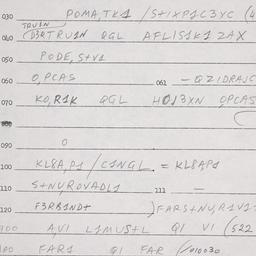 030 POMA,TK1 / S+IXP1C3YC (4
TRU1N
040 (D3R TRU1N QGL AFLIS1K1 2AX
050 PODE,S+V1
060 O,PCAS 061 - QZIDRAJC
070 KO,R1K QGL HO13XN OPCAS
080
090 O
100 KL8A,P1 / C1NGL = KL8AP1
110 S+NUROVADL1 111 —
120 F3RB1ND+ ) FARS+NU,R1V1
200 AVI L1MUS+L QI VI (522
FAR1 QI FAR (/010030